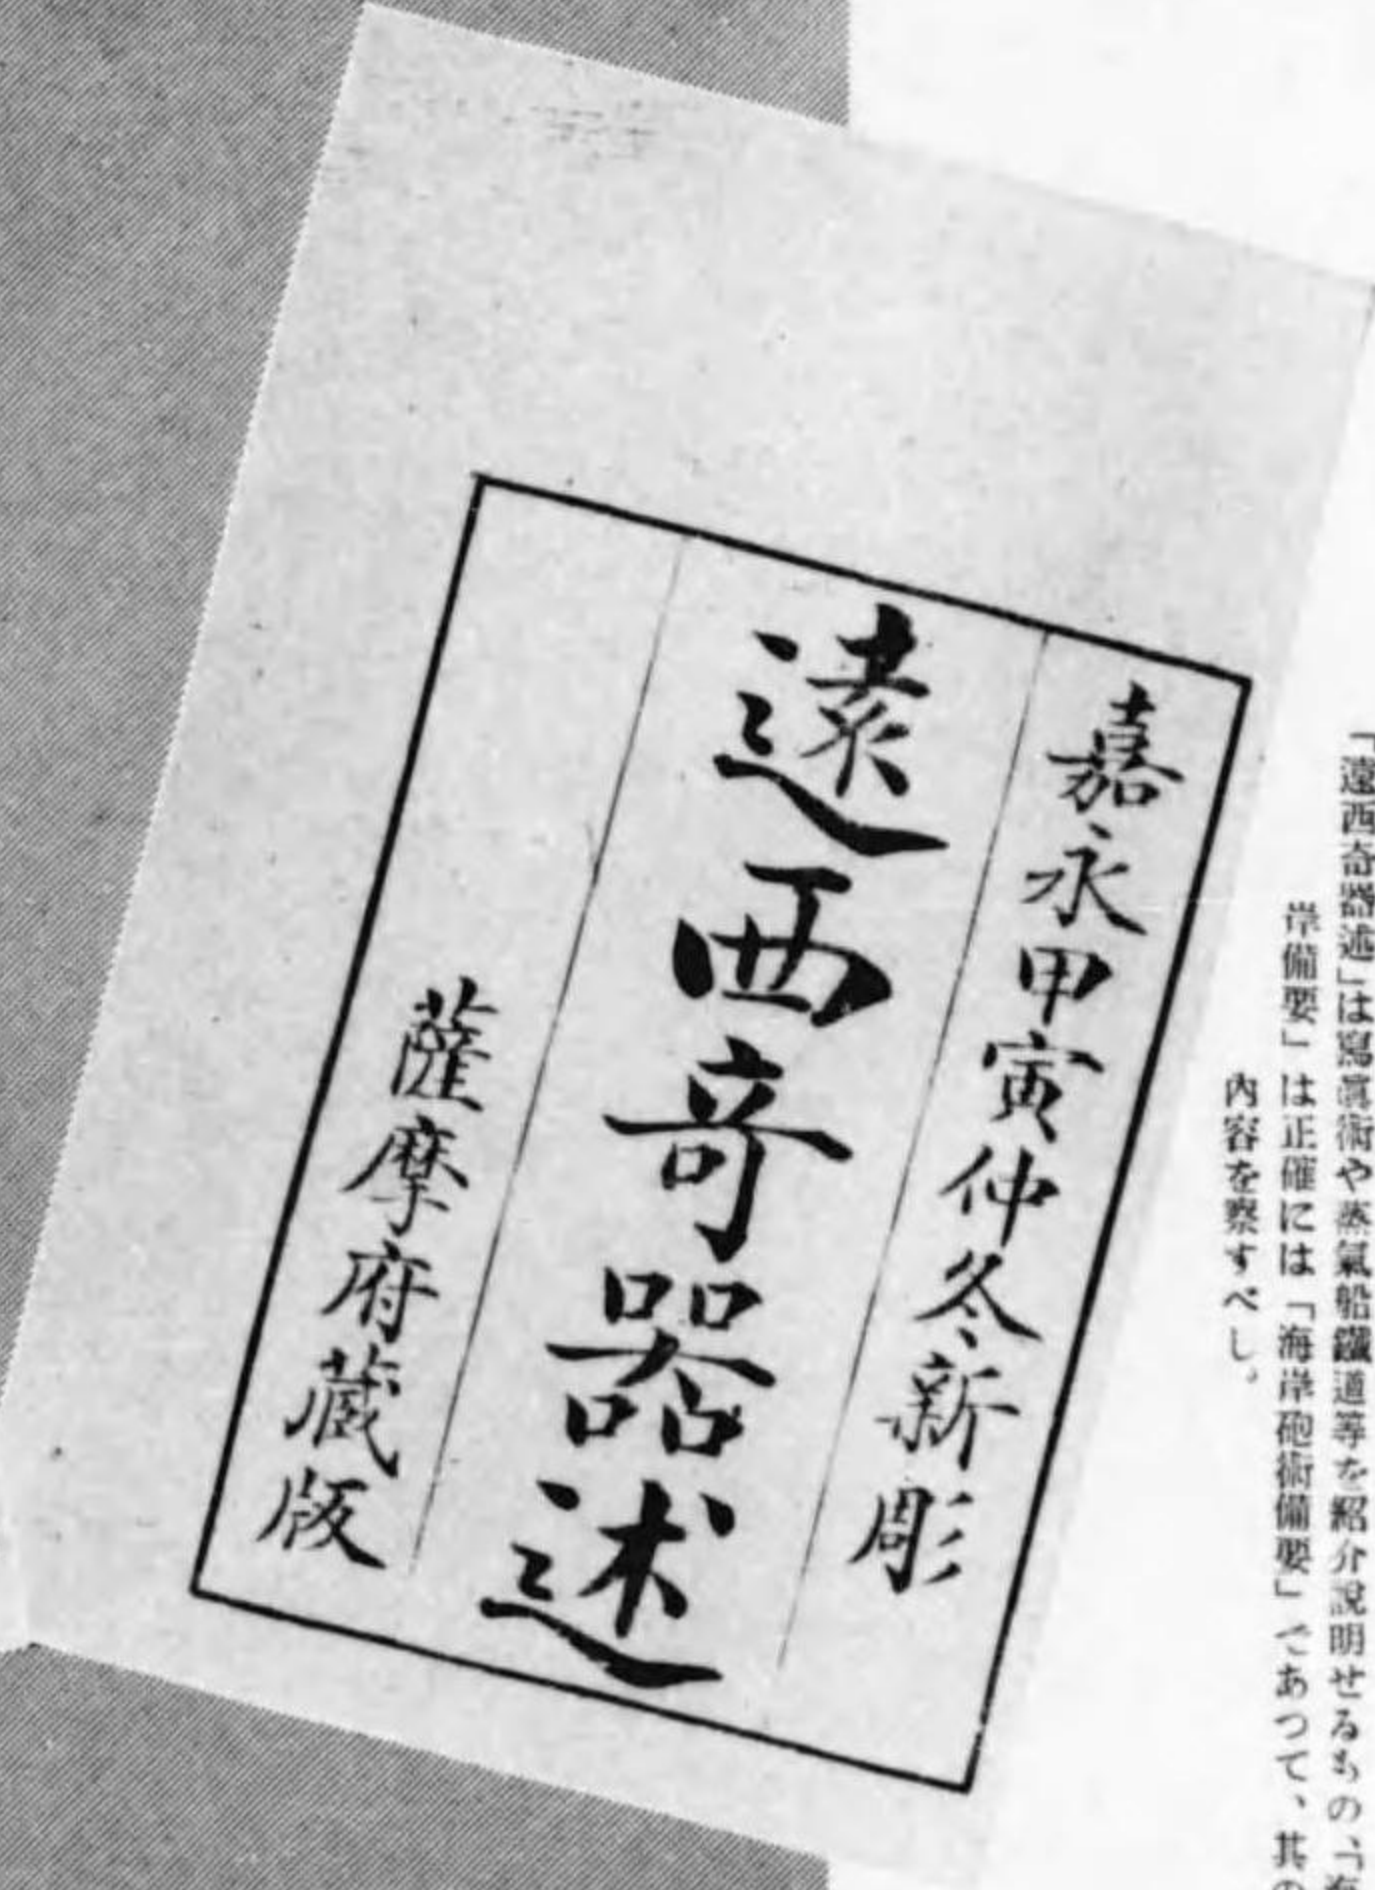 嘉永甲寅仲冬新彫
遠西奇器述
薩摩府蔵版
「遠西奇器述」は寫眞術や蒸氣船鐵道等を紹介說明せるもの、「海
岸備要」は正確には「海岸砲術備要」であつて、其の
內容を察すべし。